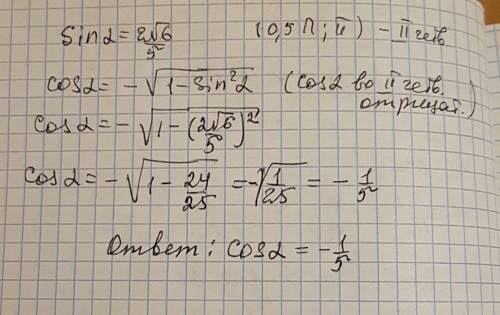 sin α = 2√6/5 (0,5 П; П) – II четв.
cos α = -√(1 - sin² α) (cos α во II четв. отрицат.)
cos α = -√(1 - (2√6/5)²)
cos α = -√(1 - 24/25) = -√(1/25) = -1/5
Ответ: cos α = -1/5